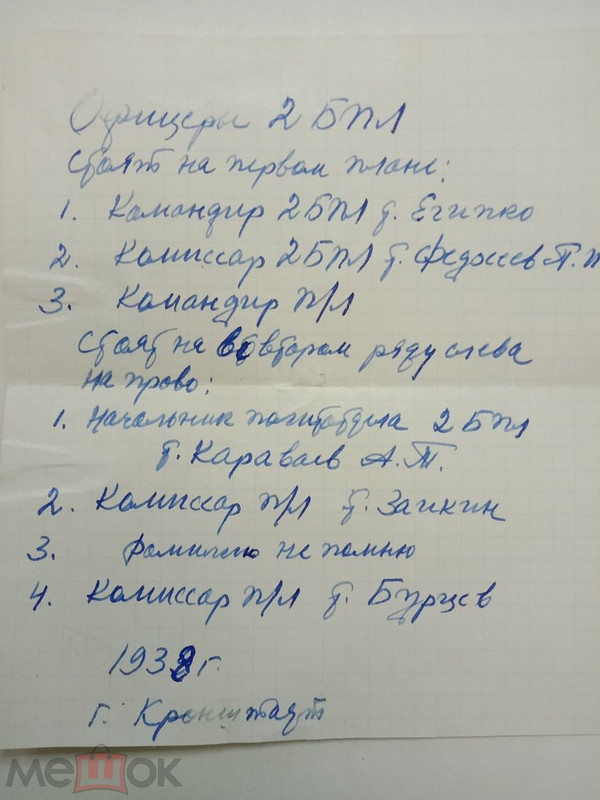 Офицеры 2 БПЛ
Стоят на первом плане:
1. Командир 2 БПЛ т. Египко
2. Комиссар 2 БПЛ т. Федосеев П.
3. Командир п/л
Стоят на во втором ряду слева
на право:
1. Начальник политотдела 2 БПЛ
т. Караваев А.Т.
2. Комиссар п/л т. Заикин
3. фамилию не помню
4. Комиссар п/л т. Бурцев
1938 г.
г. Кронштадт
мешок